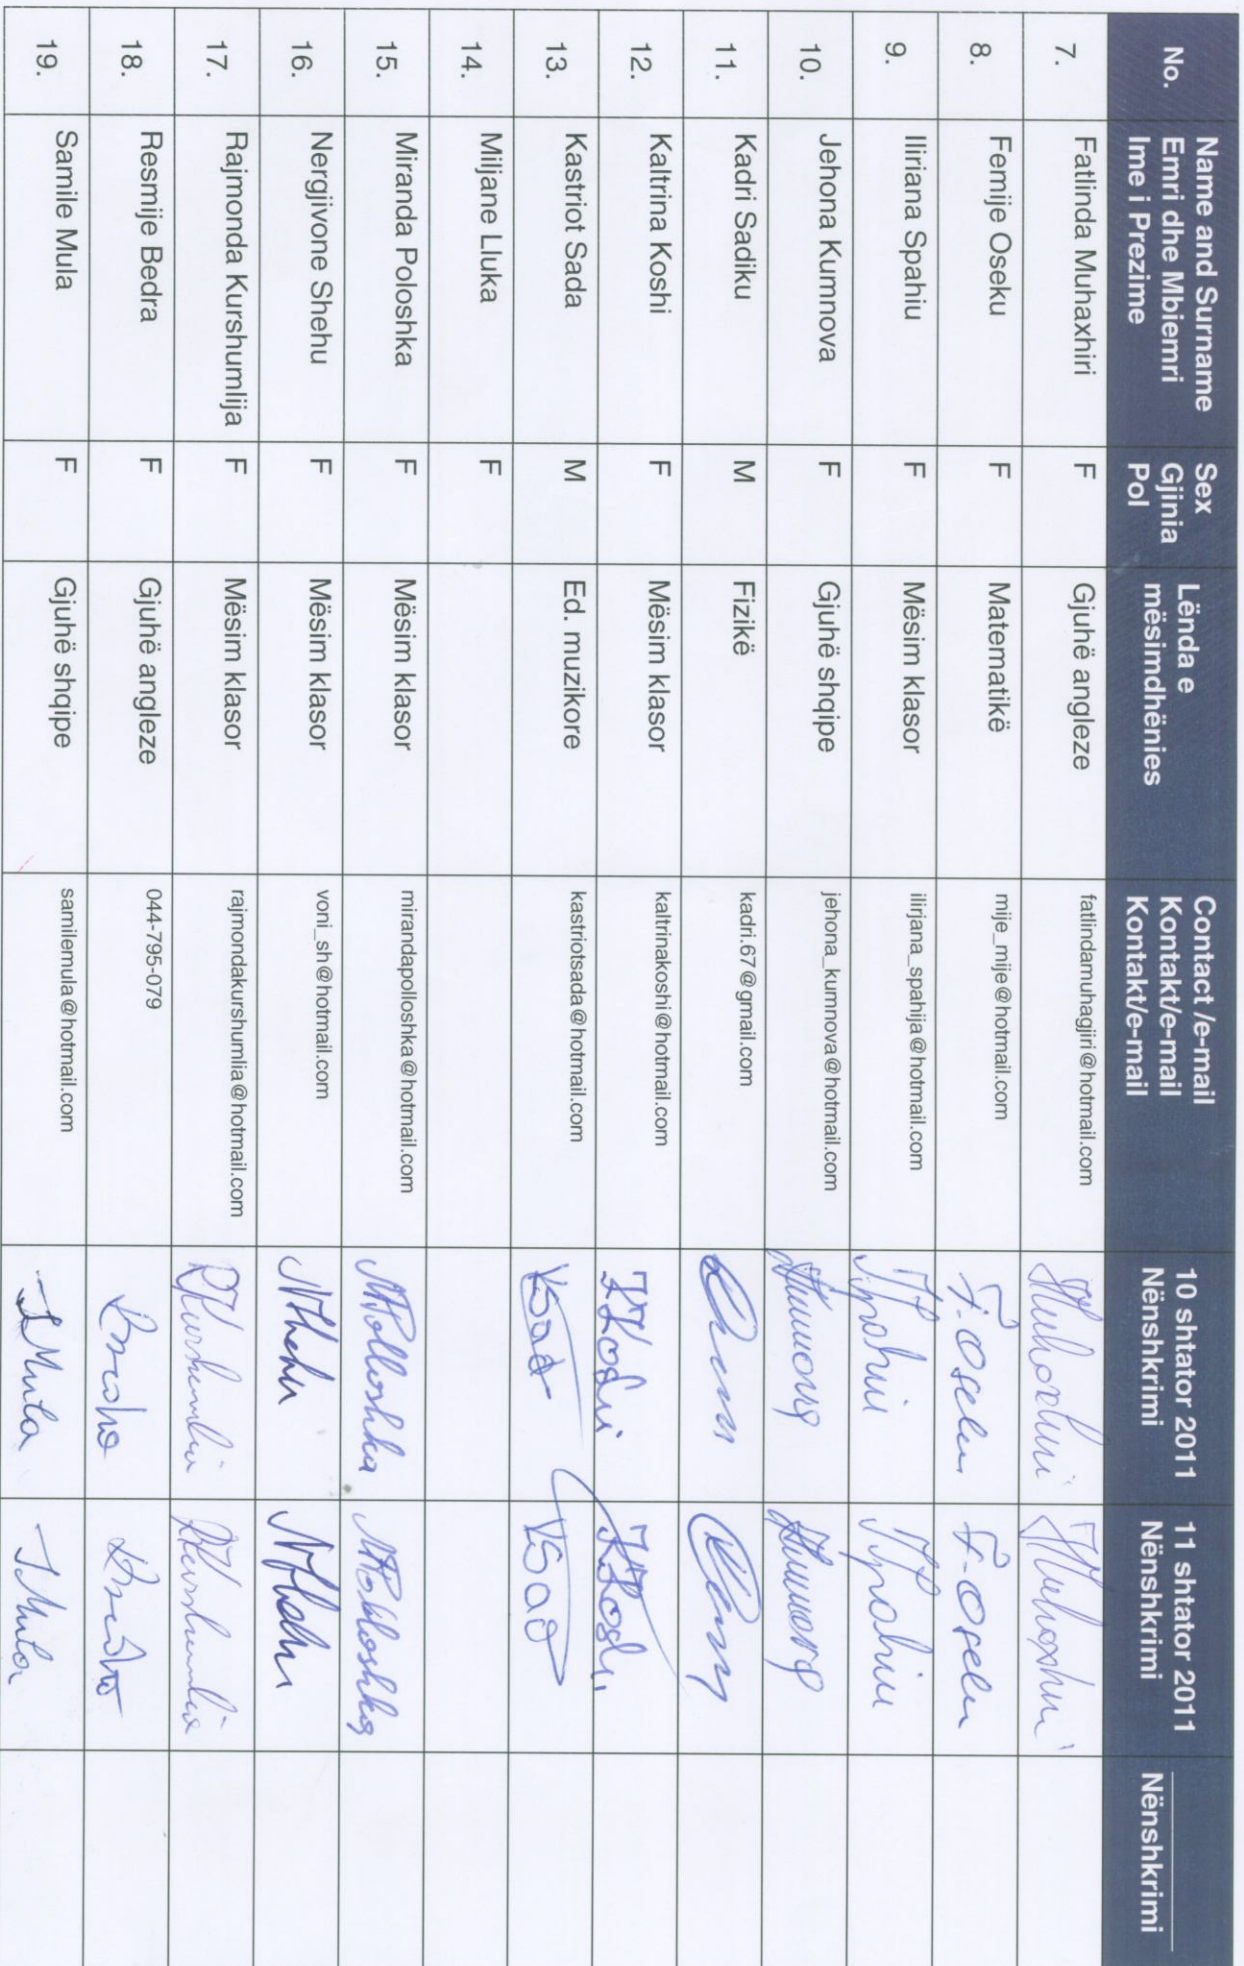 No. Name and Surname Sex Lënda e Contact /e-mail 10 shtator 2011 11 shtator 2011
Emri dhe Mbiemri Gjinia mësimdhënies Kontakt/e-mail Nënshkrimi Nënshkrimi Nënshkrimi
Ime i Prezime Pol Kontakt/e-mail
7. Fatlinda Muhaxhiri F Gjuhë angleze fatlindamuhagjiri@hotmail.com
8. Femije Oseku F Matematikë mije_mije@hotmail.com F. Oseku F. Oseku
9. Iliriana Spahiu F Mësim klasor ilirjana_spahija@hotmail.com
10. Jehona Kumnova F Gjuhë shqipe jehona_kumnova@hotmail.com
11. Kadri Sadiku M Fizikë kadri.67@gmail.com
12. Kaltrina Koshi F Mësim klasor kaltrinakoshi@hotmail.com
13. Kastriot Sada M Ed. muzikore kastriotsada@hotmail.com
14. Miljane Lluka F
15. Miranda Poloshka F Mësim klasor mirandapolloshka@hotmail.com MPolloshka MPolloshka
16. Nergjivone Shehu F Mësim klasor voni_sh@hotmail.com NShehu NShehu
17. Rajmonda Kurshumlija F Mësim klasor rajmondakurshumlia@hotmail.com RKurshumlia RKurshumlia
18. Resmije Bedra F Gjuhë angleze 044-795-079
19. Samile Mula F Gjuhë shqipe samilemula@hotmail.com SMula SMula